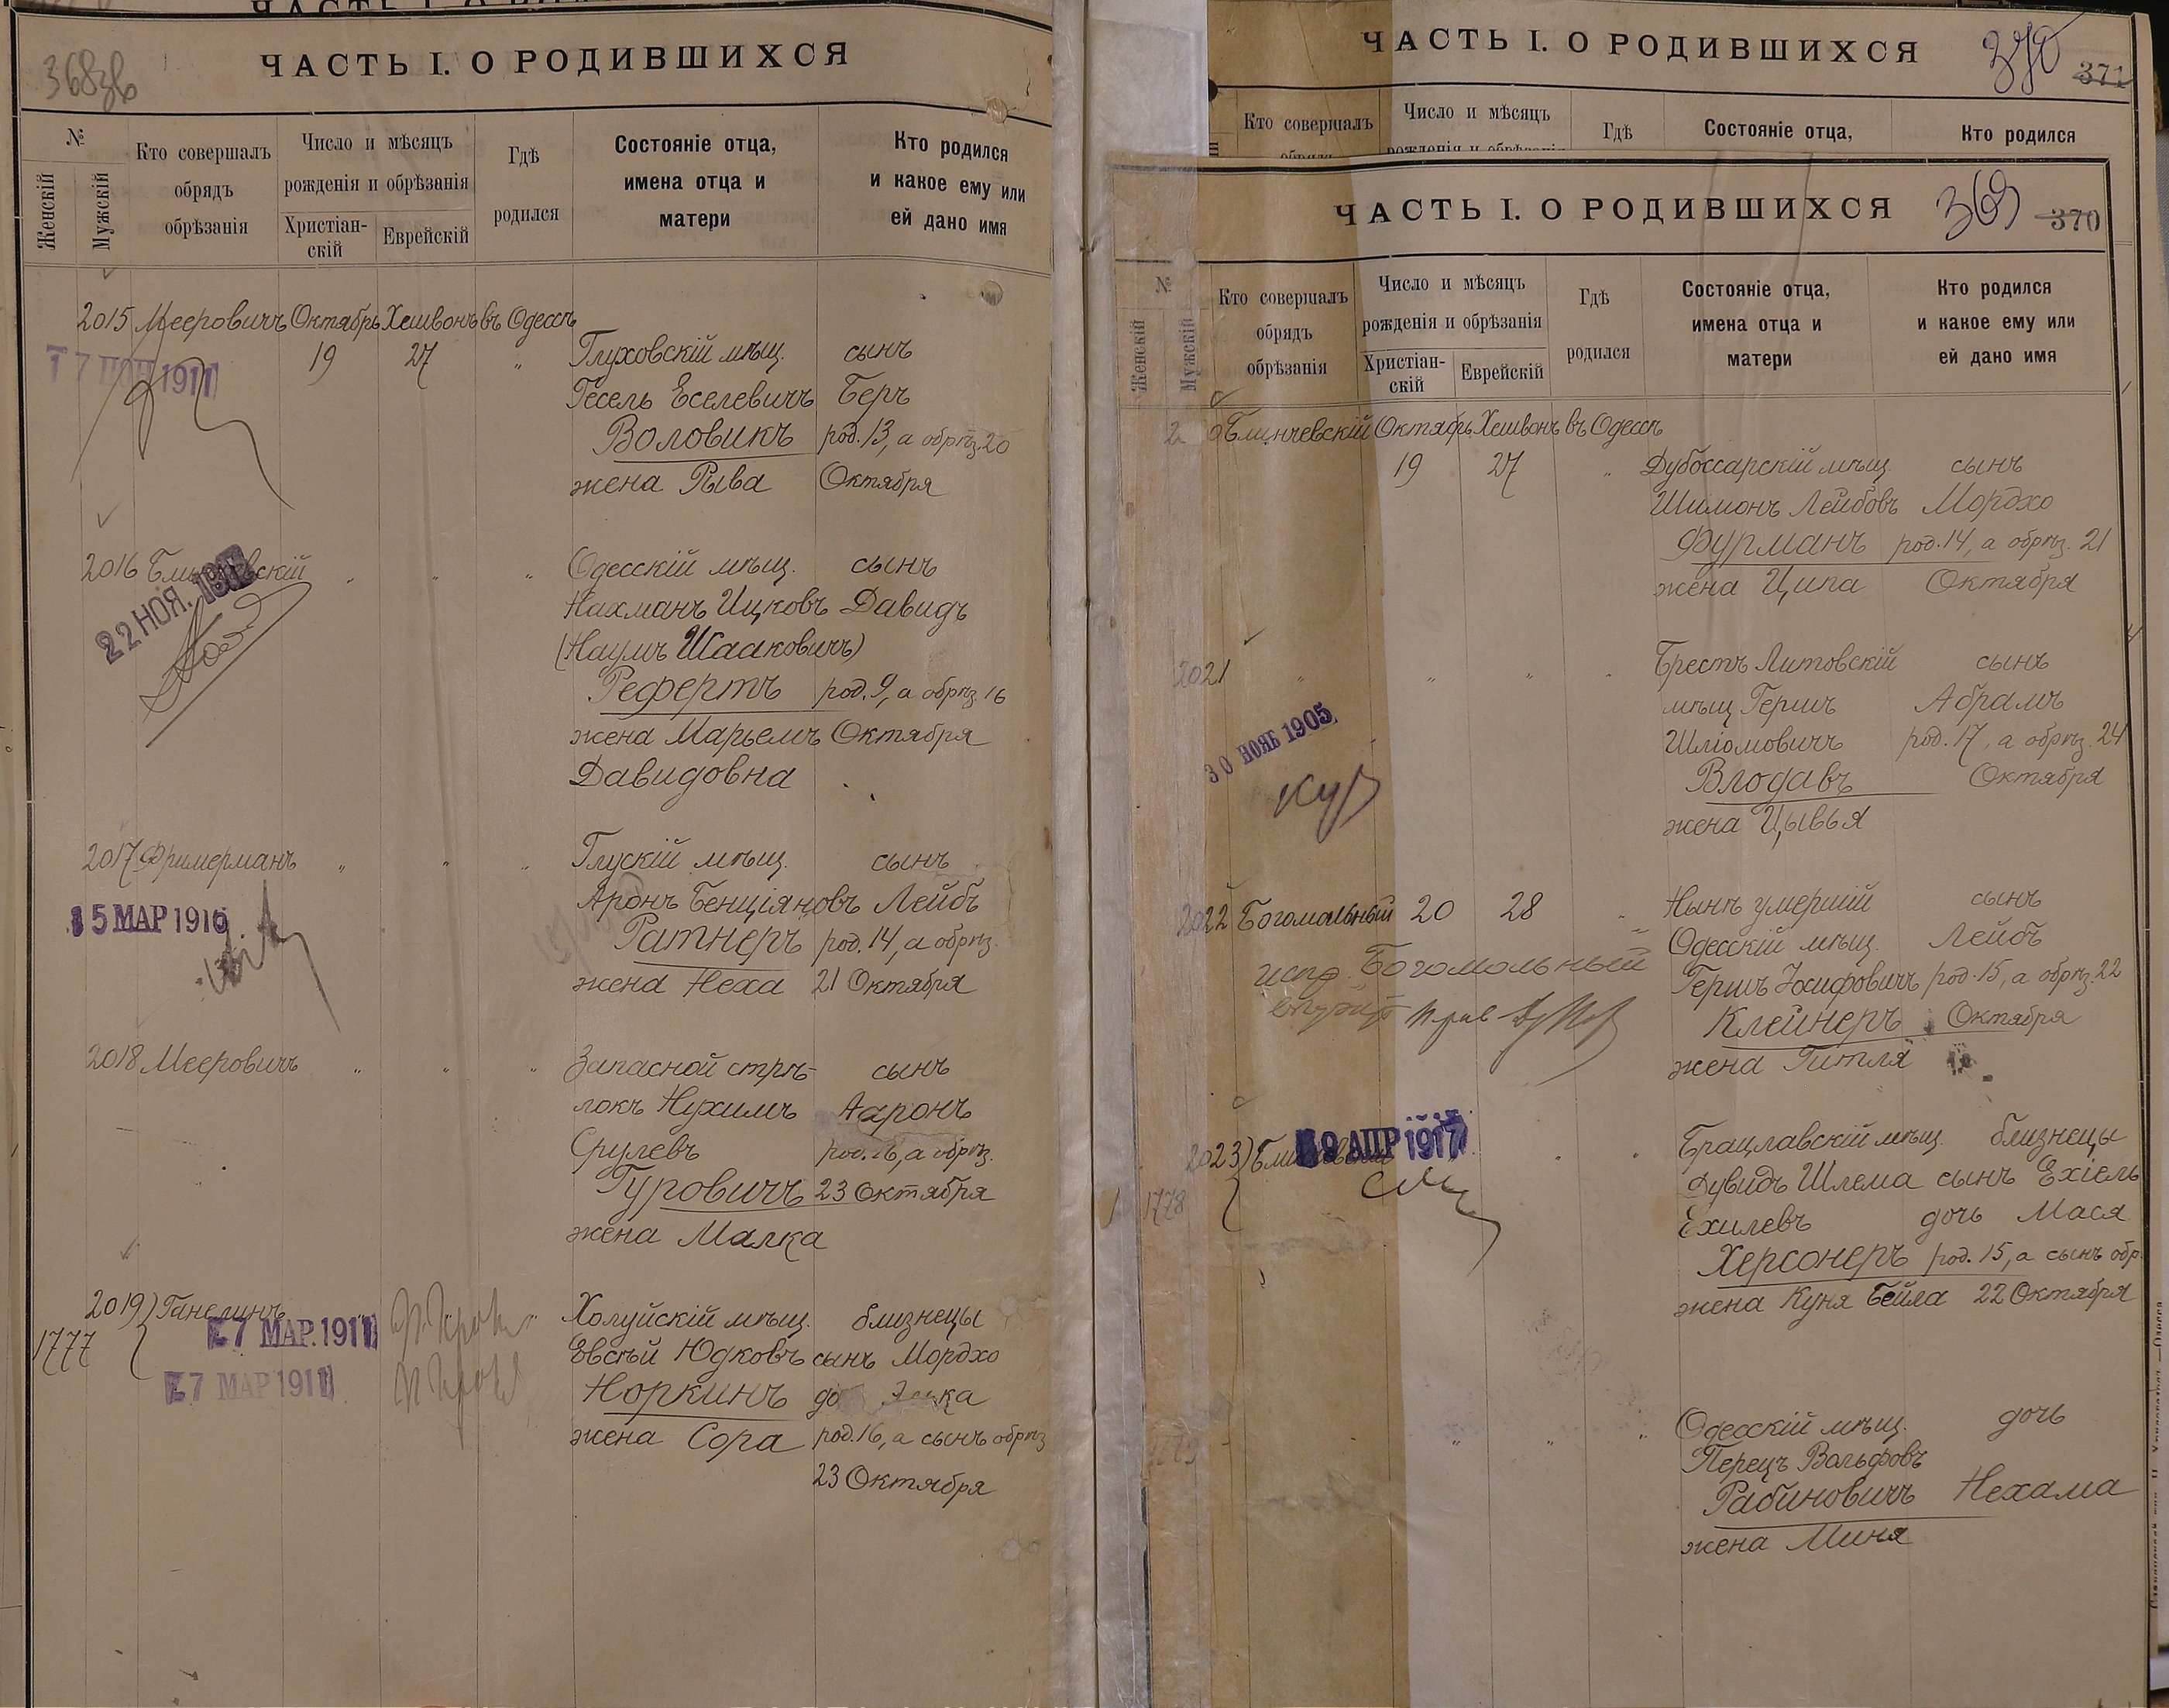 ЧАСТЬ I. О РОДИВШИХСЯ
№
Женскій
Мужскій
Кто совершалъ
обрядъ
обрѣзанія
Число и мѣсяцъ
рожденія и обрѣзанія
Христіан-
скій
Еврейскій
Гдѣ
родился
Состояніе отца,
имена отца и
матери
Кто родился
и какое ему или
ей дано имя
2015 Мееровичъ Октябрь Хешвонъ въ Одессѣ
19 27 " Глуховскій мѣщ. сынъ
1911
Гесель Еселевичъ Беръ
Воловикъ род. 13, а обрѣз. 20
жена Рыва Октября
2016 " " " Одесскій мѣщ. сынъ
22 НОЯ.
Нахманъ Ицковъ Давидъ
(Наумъ Исааковичъ)
Рефертъ род. 9, а обрѣз. 16
жена Марьемъ Октября
Давидовна
2017 Фримерманъ " " " Глускій мѣщ. сынъ
5 МАР 1916
Аронъ Бенціяновъ Лейбъ
Ратнеръ род. 14, а обрѣз.
жена Неха 21 Октября
2018 Мееровичъ " " " Запасной стрѣ- сынъ
локъ Нухимъ Ааронъ
Срулевъ род. 16, а обрѣз.
Гуровичъ 23 Октября
жена Малка
2019) Ганелинъ " Холуйскій мѣщ. близнецы
7 МАР. 1911
1777 Евсѣй Юдковъ сынъ Мордхо
7 МАР 1911
Норкинъ
жена Сора род. 16, а сынъ обрѣз
23 Октября
ЧАСТЬ I. О РОДИВШИХСЯ 370 371
Кто совершалъ
Число и мѣсяцъ
Гдѣ
Состояніе отца,
Кто родился
ЧАСТЬ I. О РОДИВШИХСЯ 369 370
№
Женскій
Мужскій
Кто совершалъ
обрядъ
обрѣзанія
Число и мѣсяцъ
рожденія и обрѣзанія
Христіан-
скій
Еврейскій
Гдѣ
родился
Состояніе отца,
имена отца и
матери
Кто родился
и какое ему или
ей дано имя
Блинчевскій Октябрь Хешвонъ въ Одессѣ
19 27 " Дубоссарскій мѣщ. сынъ
Шимонъ Лейбовъ Мордхо
Фурманъ род. 14, а обрѣз. 21
жена Ципа Октября
2021 " " " " Брестъ Литовскій сынъ
мѣщ Гершъ Абрамъ
30 НОЯБ 1905
Шліомовичъ род. 17, а обрѣз. 24
Влодавъ Октября
жена Цывья
2022 Богомольный 20 28 " Нынѣ умершій сынъ
Одесскій мѣщ. Лейбъ
Богомольный
Гершъ Іосифовичъ род. 15, а обрѣз. 22
Клейнеръ Октября
жена Гитля
2023) Брацлавскій мѣщ. близнецы
9 АПР 1917
Дувидъ Шлема сынъ Ехіель
1778 Ехилевъ дочь Мася
Херсонеръ род. 15, а сынъ обр.
жена Куня Бейла 22 Октября
" " " Одесскій мѣщ. дочь
Перецъ Вольфовъ
Рабиновичъ Нехама
жена Миня